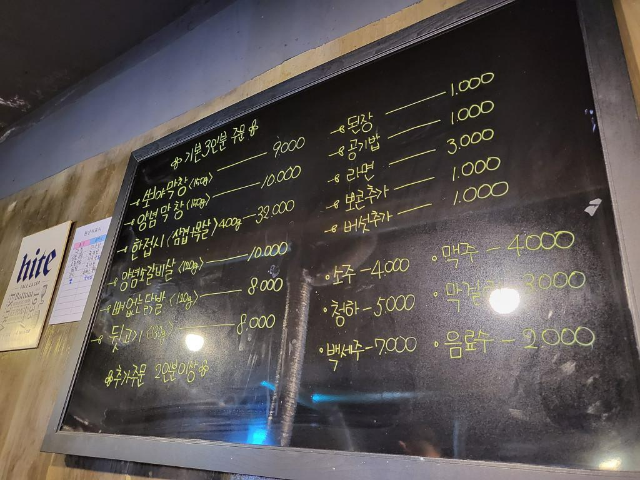 기본 3인분 주문
쏘야막창 (150g) 9.000
양념막창 (150g) 10.000
한접시 (삼겹+목살) 400g 32.000
양념소갈비살 10.000
뼈없는닭발 8.000
뒷고기 8.000
추가주문 2인분이상
된장 1.000
공기밥 1.000
라면 3.000
뽀꼬추가 1.000
버섯추가 1.000
소주 - 4.000
청하 - 5.000
백세주 - 7.000
맥주 - 4.000
막걸리 3000
음료수 - 2000
hite